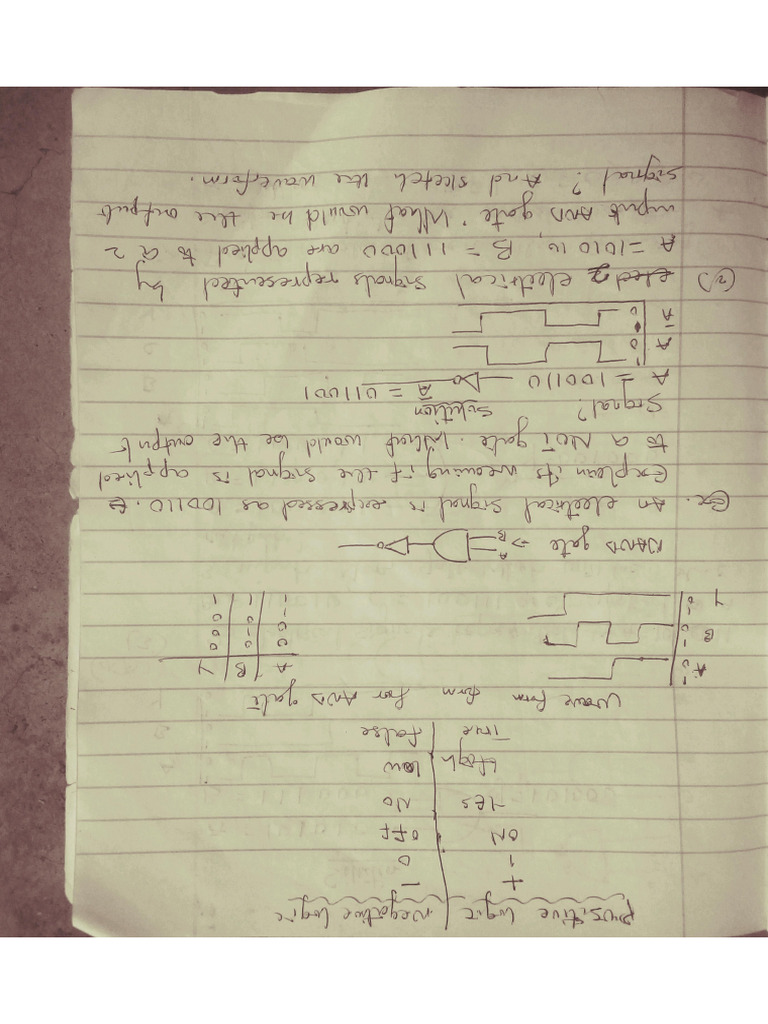 Positive Logic | Negative Logic
+ −
1 0
ON OFF
Yes No
High low
True false
Wave form form for AND gate
A B Y
0 0 0
0 1 0
1 0 0
1 1 1
A 1 0
B 1 0
Y 1 0
NAND gate → A B
Ex. An electrical signal is expressed as 100110.
Explain its meaning if the signal is applied
to a NOT gate. What would be the output
Signal? Solution
A = 100110 Ā = 011001
A 1 0
Ā 0
(2) electrical signals represented by
A = 1010 10, B = 111000 are applied to a 2
input AND gate. What would be the output
signal? And sketch the waveform.